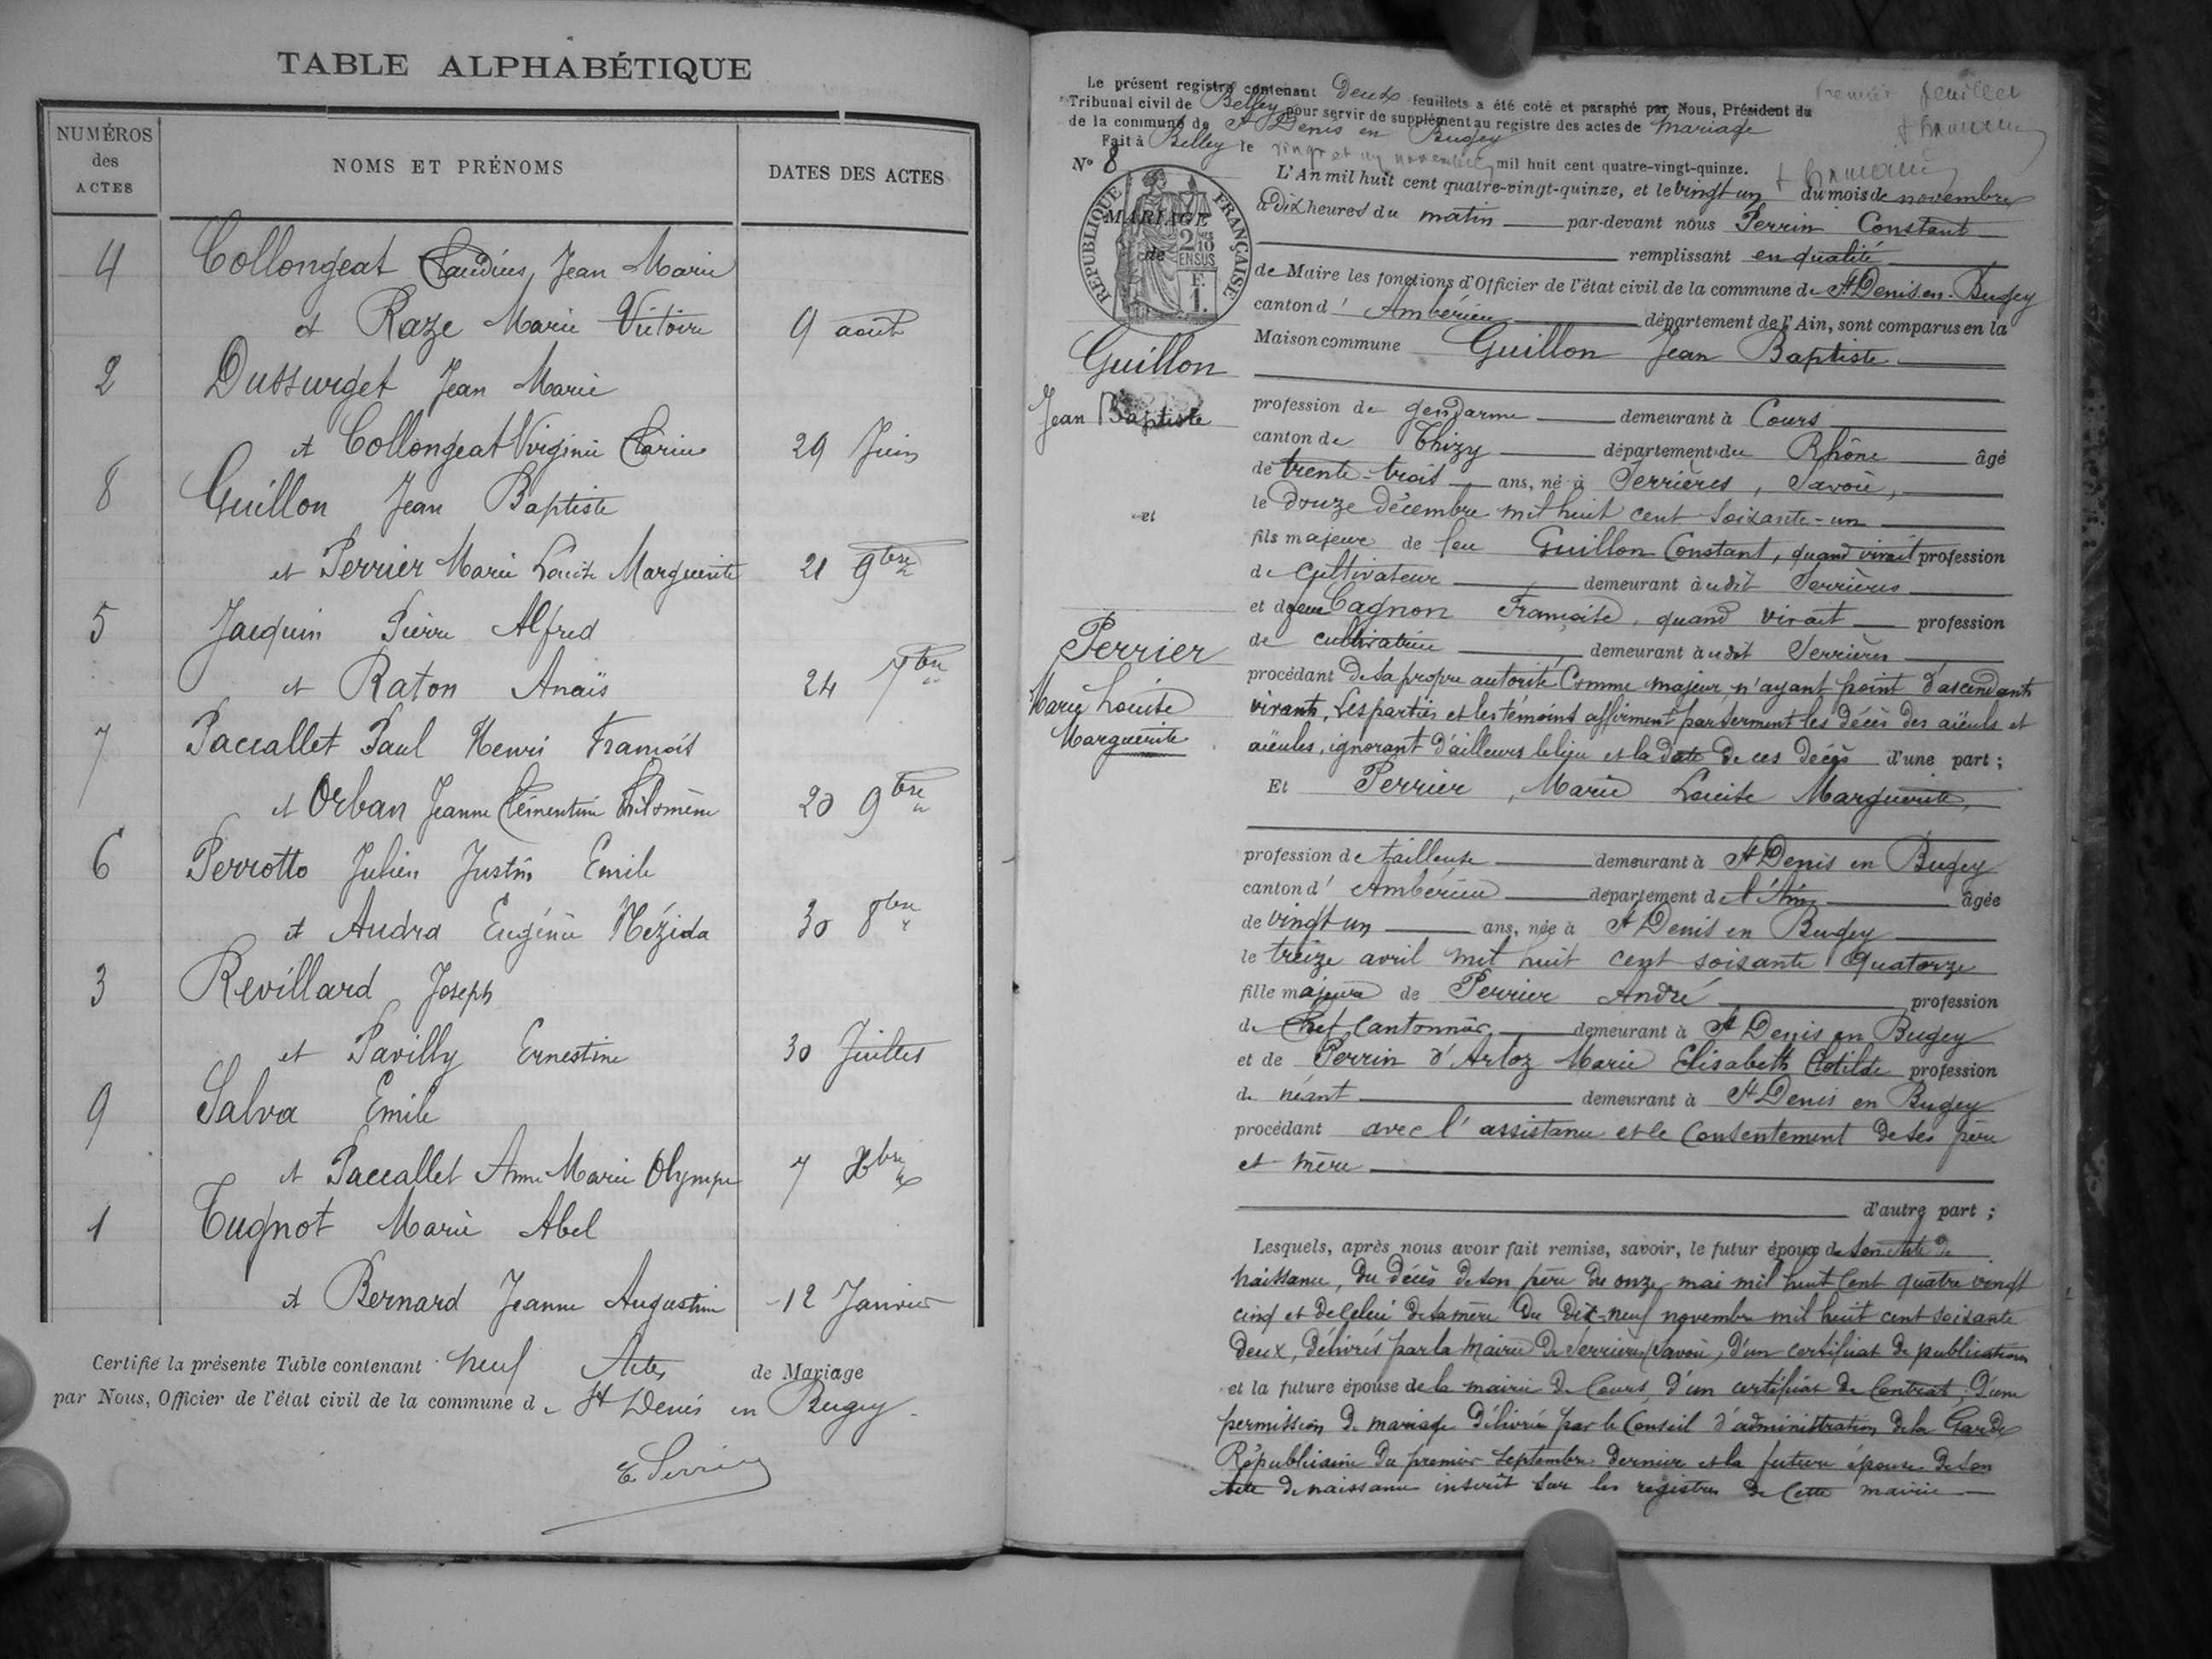 TABLE ALPHABÉTIQUE
NUMÉROS
des
ACTES
NOMS ET PRÉNOMS
DATES DES ACTES
4 Collongeat Claudius, Jean Marie
et Raze Marie Victoire 9 août
2 Dussurget Jean Marie
et Collongeat Virginie Clarisse 29 Juin
8 Guillon Jean Baptiste
et Perrier Marie Louise Marguerite 21 9bre
5 Jacquin Pierre Alfred
et Raton Anaïs 24 7bre
7 Paccallet Paul Henri François
et Orban Jeanne Clémentine Philomène 20 9bre
6 Perrotto Julien Justin Emile
et Audra Eugénie Mézida 30 8bre
3 Revillard Joseph
et Pavilly Ernestine 30 Juillet
9 Salva Emile
et Paccallet Anne Marie Olympe 7 Xbre
1 Tugnot Marie Abel
et Bernard Jeanne Augustine 12 Janvier
Certifié la présente Table contenant neuf Actes de Mariage
par Nous, Officier de l'état civil de la commune de St Denis en Bugey
C Perrin
Le présent registre contenant Deux feuillets a été coté et paraphé par Nous, Président du
Premier feuillet
Tribunal civil de Belley pour servir de supplément au registre des actes de Mariage
de la commune de St Denis en Bugey
Fait à Belley le vingt et un novembre mil huit cent quatre-vingt-quinze.
No 8
RÉPUBLIQUE FRANÇAISE
2/10 EN SUS
F.
1.
MARIAGE
de
Guillon
Jean Baptiste
et
Perrier
Marie Louise
Marguerite
L'An mil huit cent quatre-vingt-quinze, et le vingt un du mois de novembre
à Dix heures du matin par-devant nous Perrin Constant
remplissant en qualité
de Maire les fonctions d'Officier de l'état civil de la commune de St Denis en Bugey
canton d'Ambérieu département de l'Ain, sont comparus en la
Maison commune Guillon Jean Baptiste
profession de gendarme demeurant à Cours
canton de Thizy département du Rhône âgé
de trente-trois ans, né à Serrières, Savoie,
le Douze Décembre mil huit cent soixante-un
fils majeur de feu Guillon Constant, quand vivait profession
de Cultivateur demeurant audit Serrières
et de feue Cagnon Françoise, quand vivait profession
de cultivatrice demeurant audit Serrières
procédant de sa propre autorité Comme majeur, n'ayant point d'ascendants
vivants, Les parties et les témoins affirment par serment les décès des aïeuls et
aïeules, ignorant d'ailleurs le lieu et la date de ces décès d'une part ;
Et Perrier, Marie Louise Marguerite,
profession de tailleuse demeurant à St Denis en Bugey
canton d'Ambérieu département de l'Ain âgée
de vingt un ans, née à St Denis en Bugey
le treize avril mil huit cent soixante quatorze
fille majeure de Perrier André profession
de Chef Cantonnier demeurant à St Denis en Bugey
et de Perrin d'Arloz Marie Elisabeth Clotilde profession
de néant demeurant à St Denis en Bugey
procédant avec l'assistance et le Consentement de ses père
et mère
d'autre part ;
Lesquels, après nous avoir fait remise, savoir, le futur époux de son acte de
naissance, du décès de son père du onze mai mil huit cent quatre vingt
cinq et de celui de sa mère du dix-neuf novembre mil huit cent soixante
deux, délivrés par la Mairie de Serrières (Savoie), d'un certificat de publication
et la future épouse de la mairie de Cours, d'un certificat de Contrat, d'une
permission de mariage délivrée par le Conseil d'administration de la Garde
Républicaine du premier septembre dernier et la future épouse de son
acte de naissance inscrit sur les registres de Cette mairie